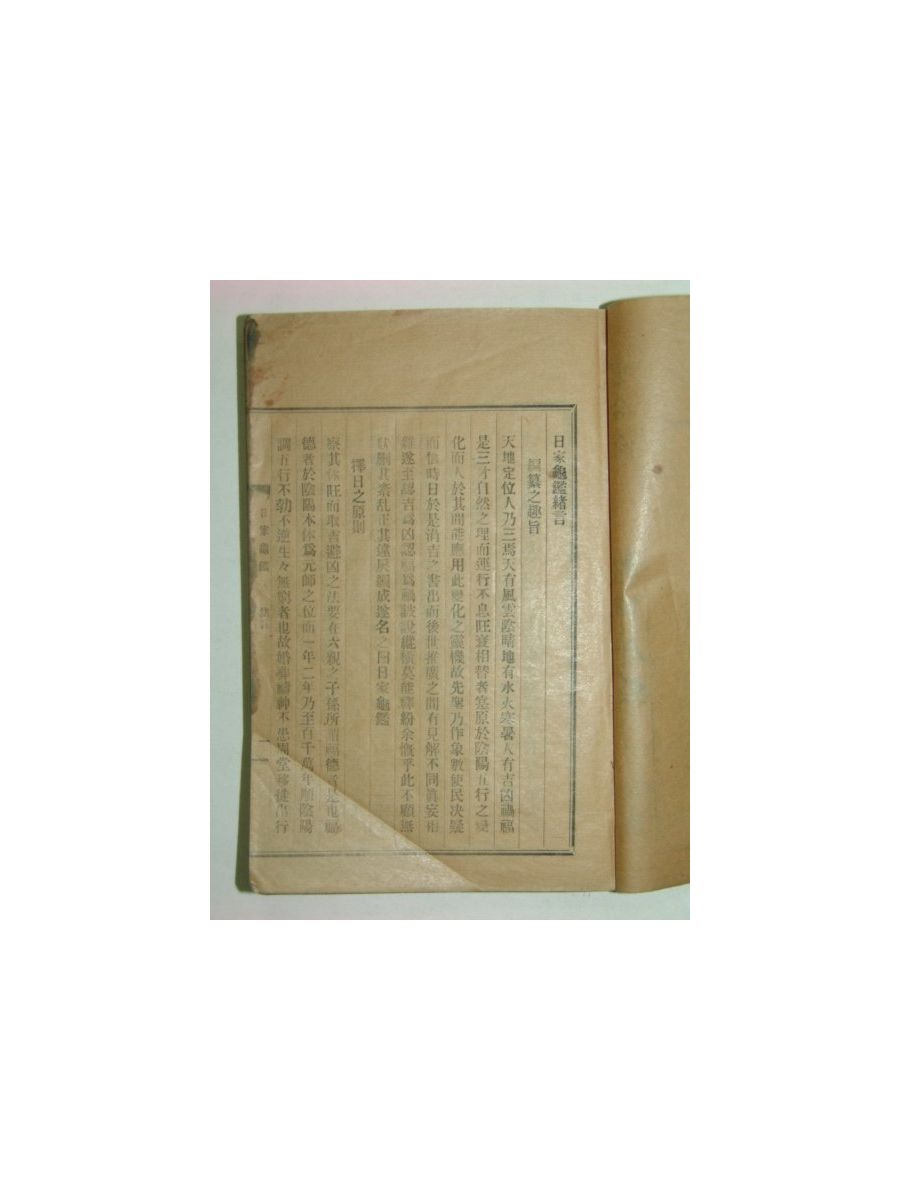 日家龜鑑緒言
編纂之趣旨
天地定位人乃三焉天有風雲陰晴地有水火寒暑人有吉凶禍福
是三才自然之理而運行不息旺衰相替者寔原於陰陽五行之變
化而人於其間能應用此變化之靈機故先聖乃作象數使民决疑
而愼時日於是涓吉之書出而後世推廣之間有見解不同眞妄相
雜遂至認吉爲凶認福爲禍詖說縱橫莫能釋紛余慨乎此不顧無
刪其紊乱正其違戾編成遂名之曰日家龜鑑
擇日之原則
察其休旺而取吉避凶之法要在六親之子孫所謂福德者是也福
德者於陰陽本体爲元師之位而一年二年乃至百千萬年順陰陽
調五行不勃不逆生々無窮者也故婚葬禱神不患周堂移徙出行
日家龜鑑
一